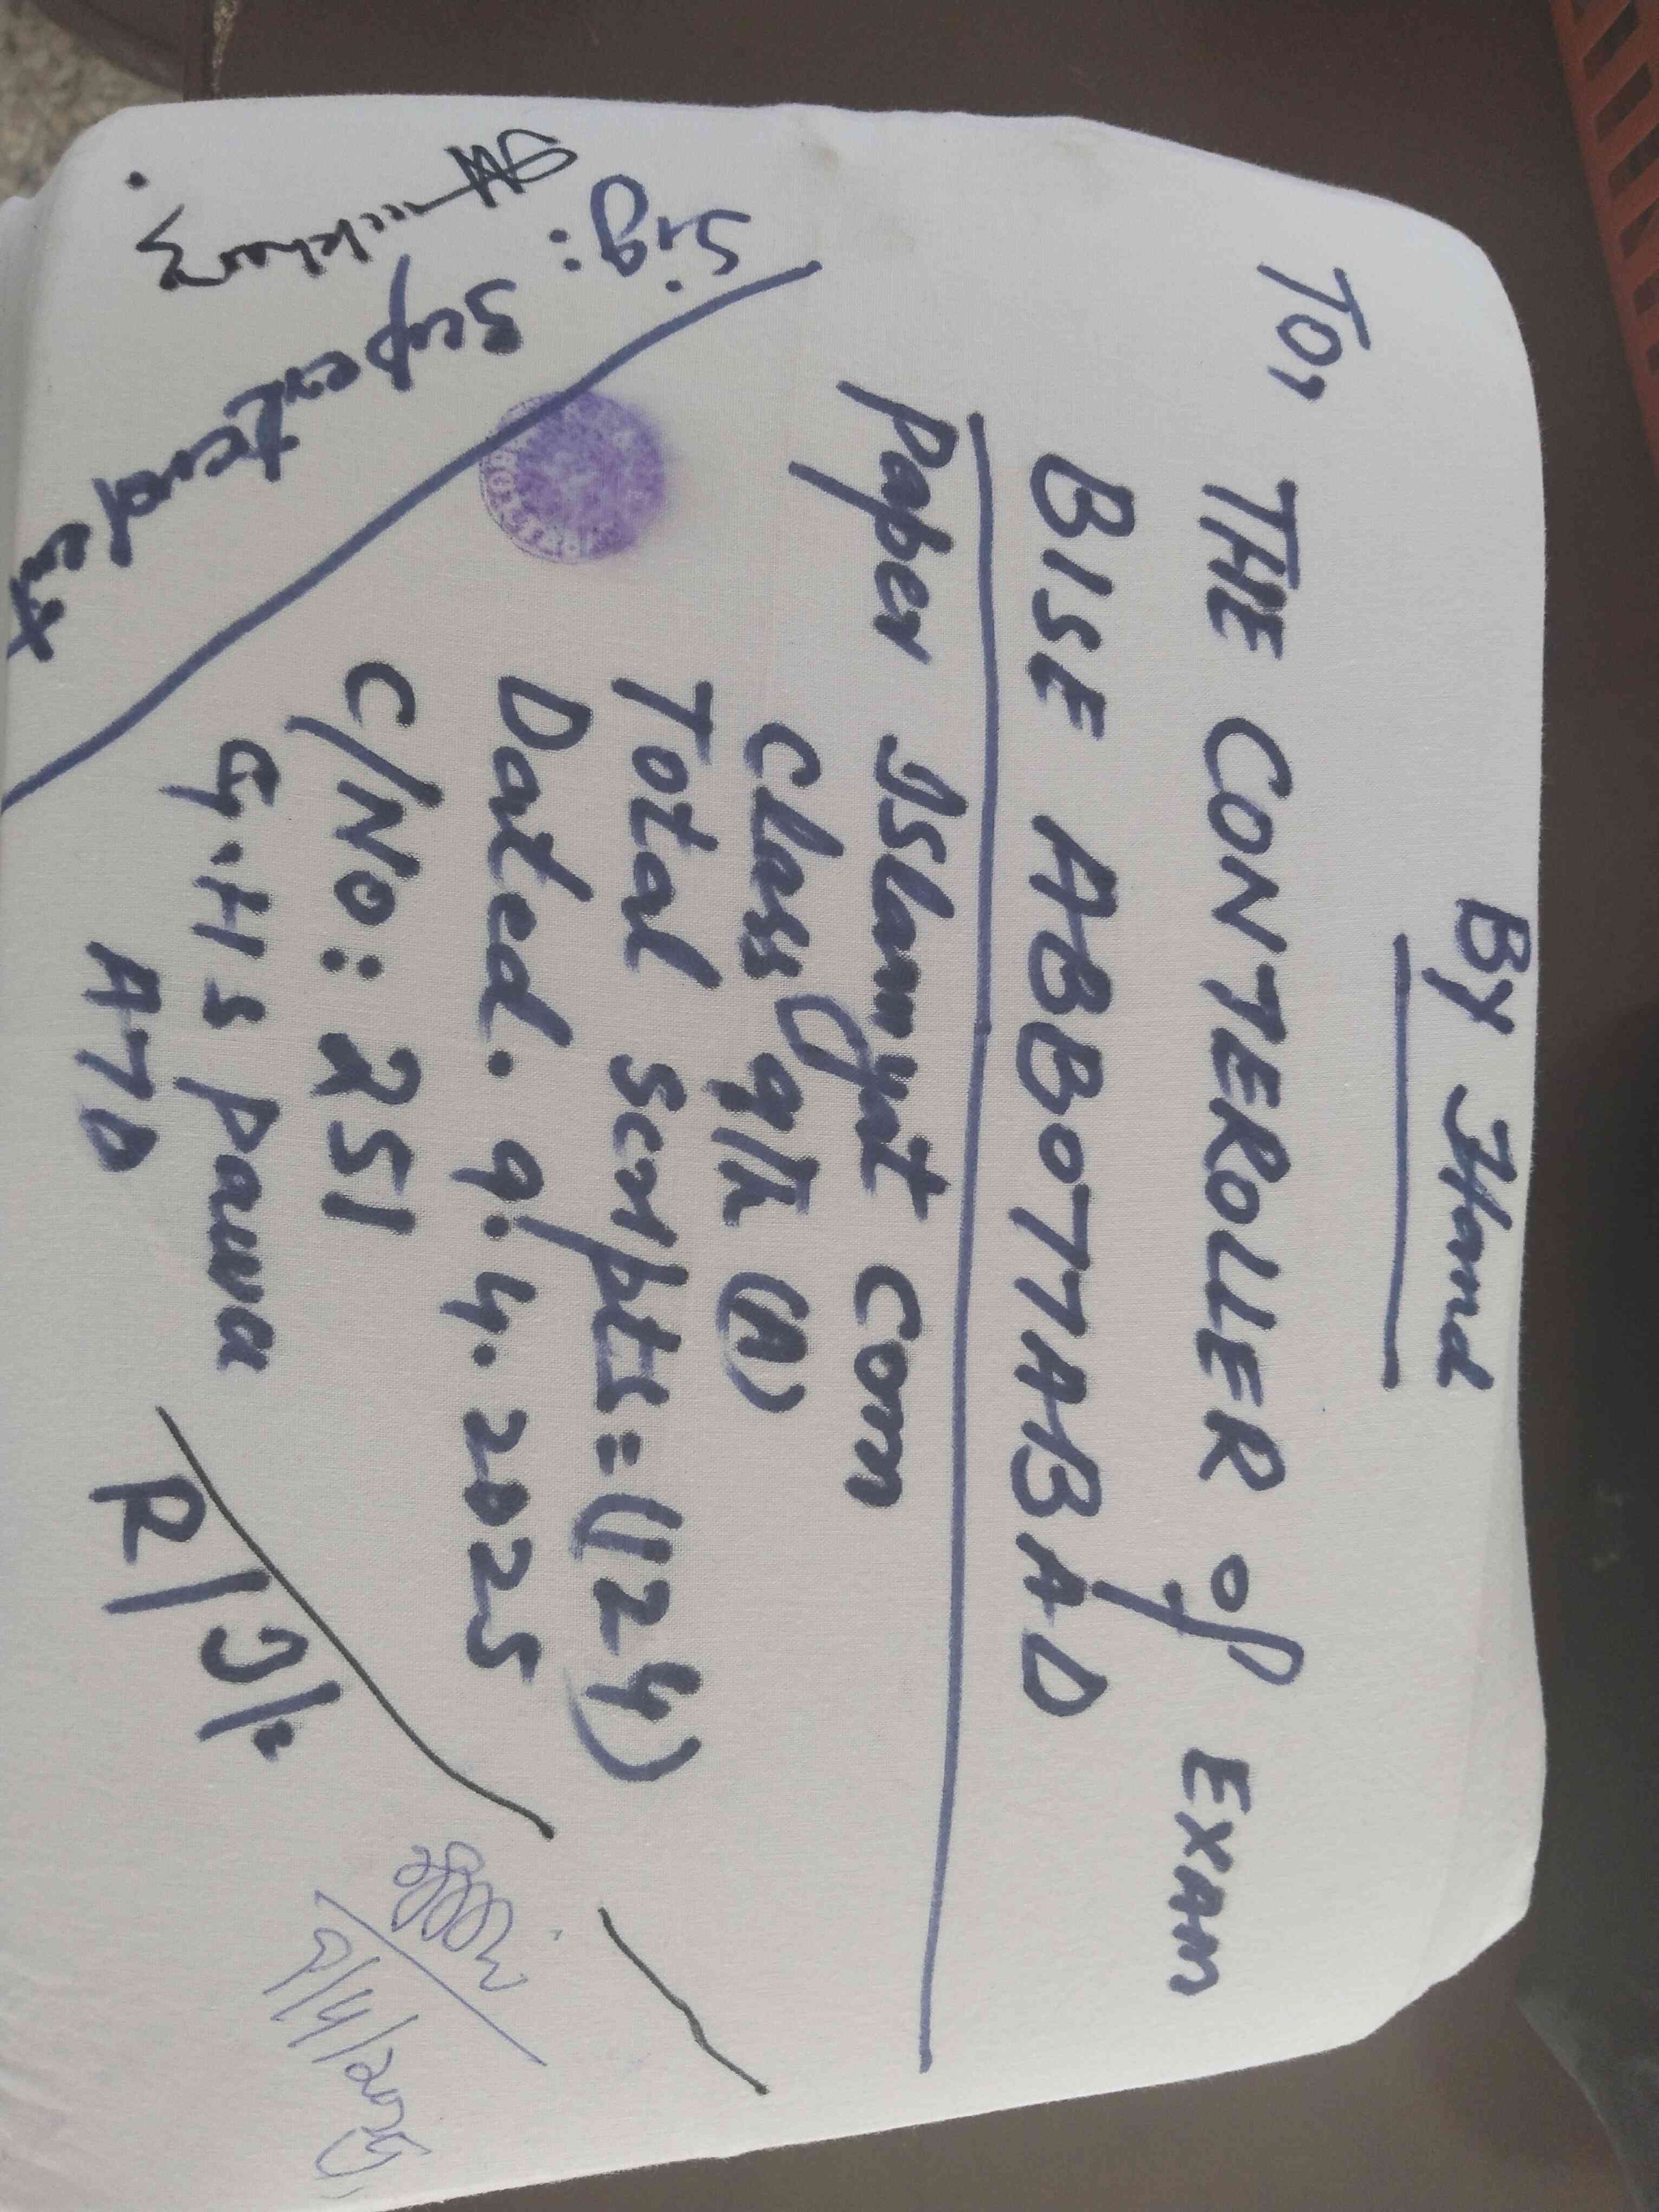 By Hand
To, THE CONTEROLLER of EXAM
BISE ABBOTTABAD
Paper Islamyat Com
Class 9th (A)
Total Scripts = (124)
Dated. 9.4.2025
C/No: 251
G.H S Pawa
ATD
Sig:
Supertendent
R/J/
9/4/2025